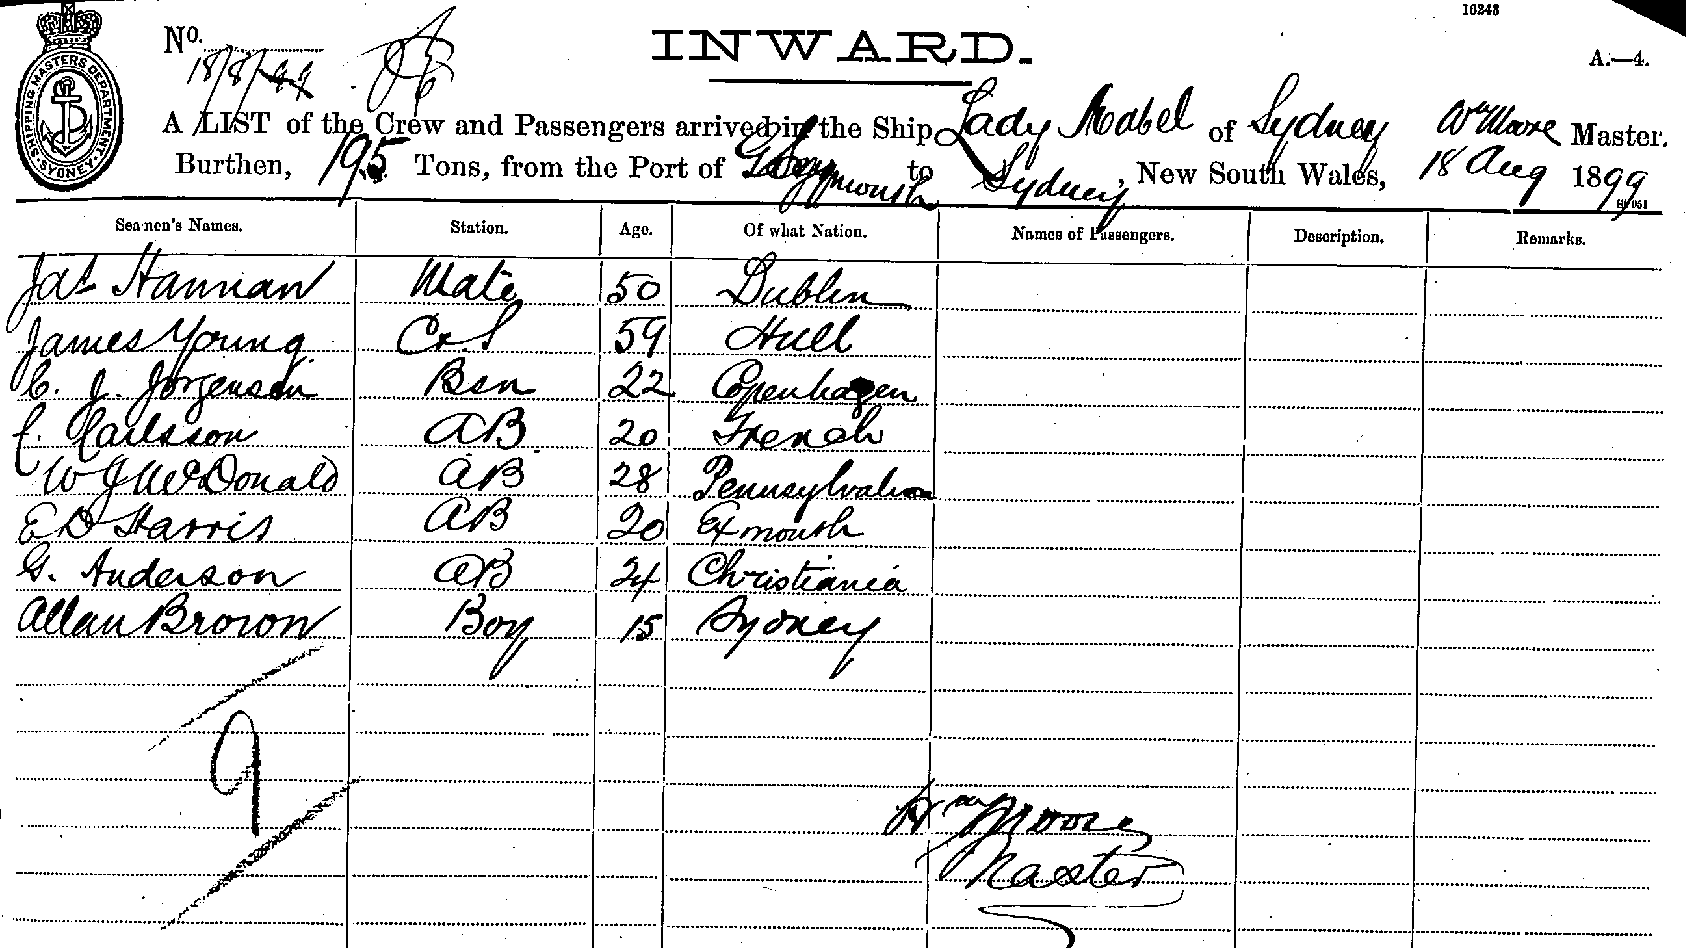 10243
No. 18/8/99
INWARD.
A.—4.
SHIPPING MASTERS DEPARTMENT. SYDNEY.
A LIST of the Crew and Passengers arrived in the Ship Lady Mabel of Sydney Wm Moore Master.
Burthen, 195 Tons, from the Port of to Sydney, New South Wales, 18 Aug 1899
Seamen's Names. Station. Age. Of what Nation. Names of Passengers. Description. Remarks.
Jas Hannan Mate 50 Dublin
James Young Ck & S 59 Hull
C. J. Jorgenson Bsn 22 Copenhagen
C. Carlsson AB 20 French
W J McDonald AB 28 Pennsylvania
E D Harris AB 20 Exmouth
G. Anderson AB 24 Christiania
Allan Brown Boy 15 Sydney
9
Wm Moore
Master